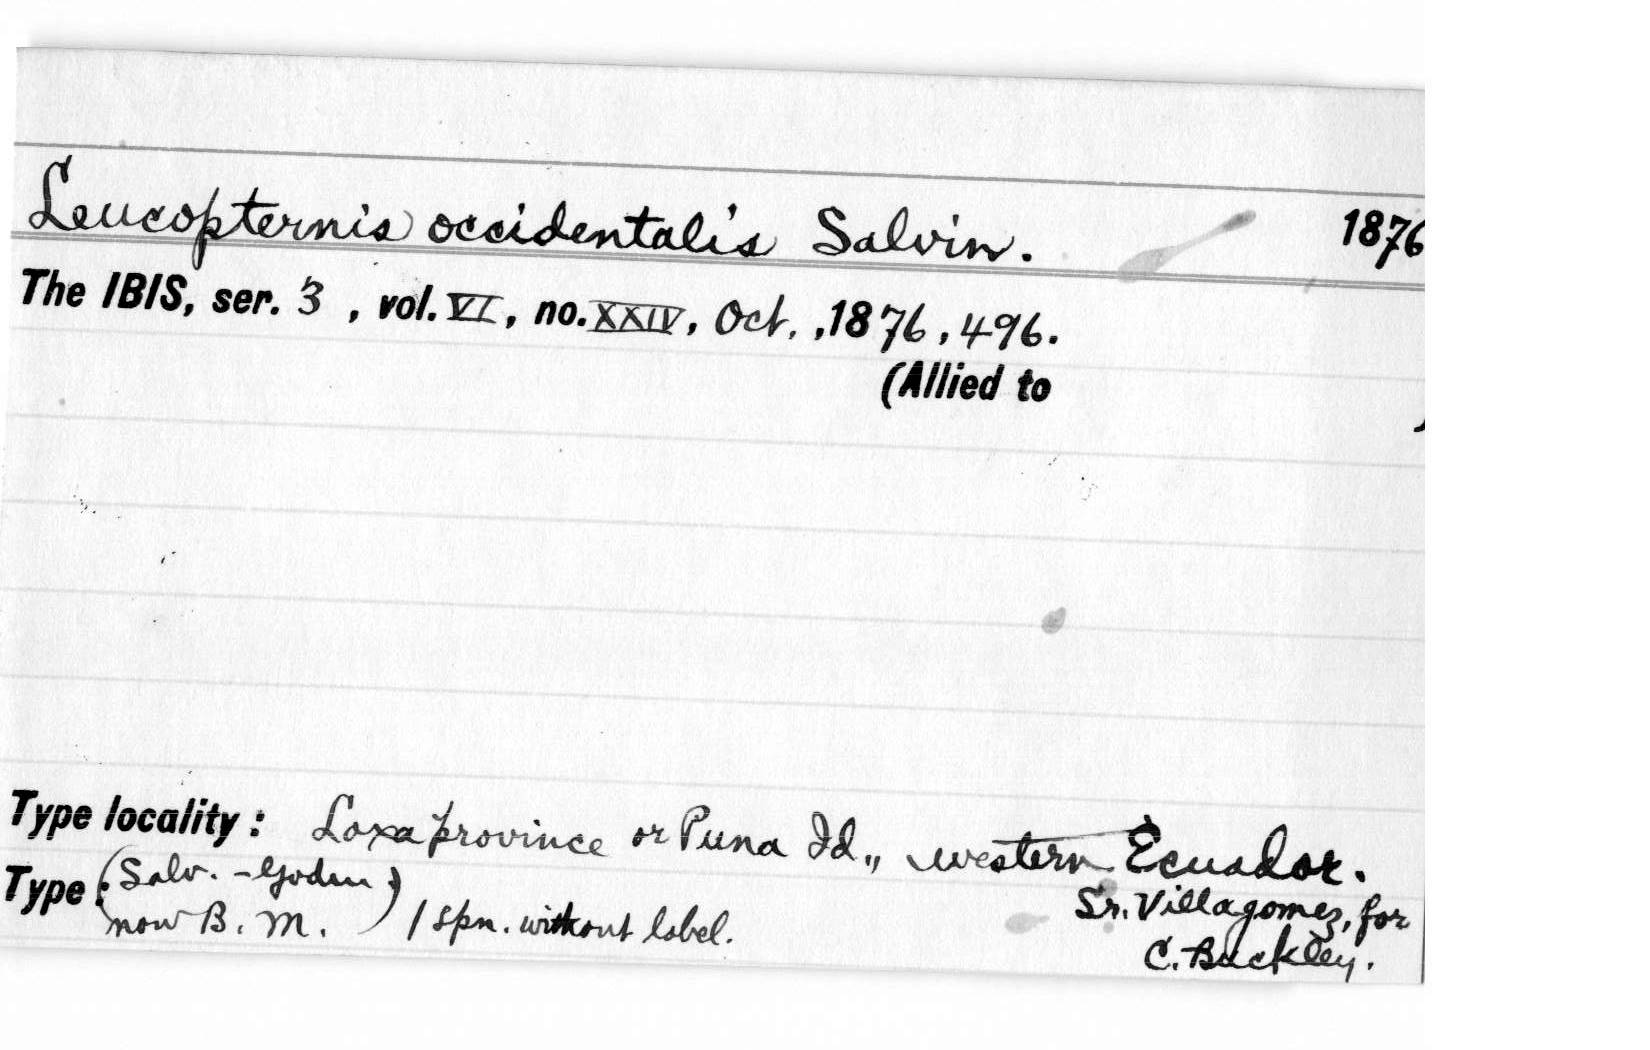 Leucopternis occidentalis Salvin. 1876
The IBIS, ser. 3 , vol. VI, no. XXIV, Oct. ,1876, 496.
(Allied to )
Type locality : Loxa province or Puna Id., western Ecuador.
Type : (Salv. - Godm
now B. M. ) 1 spn. without label.
Sr. Villagomez, for
C. Buckley.